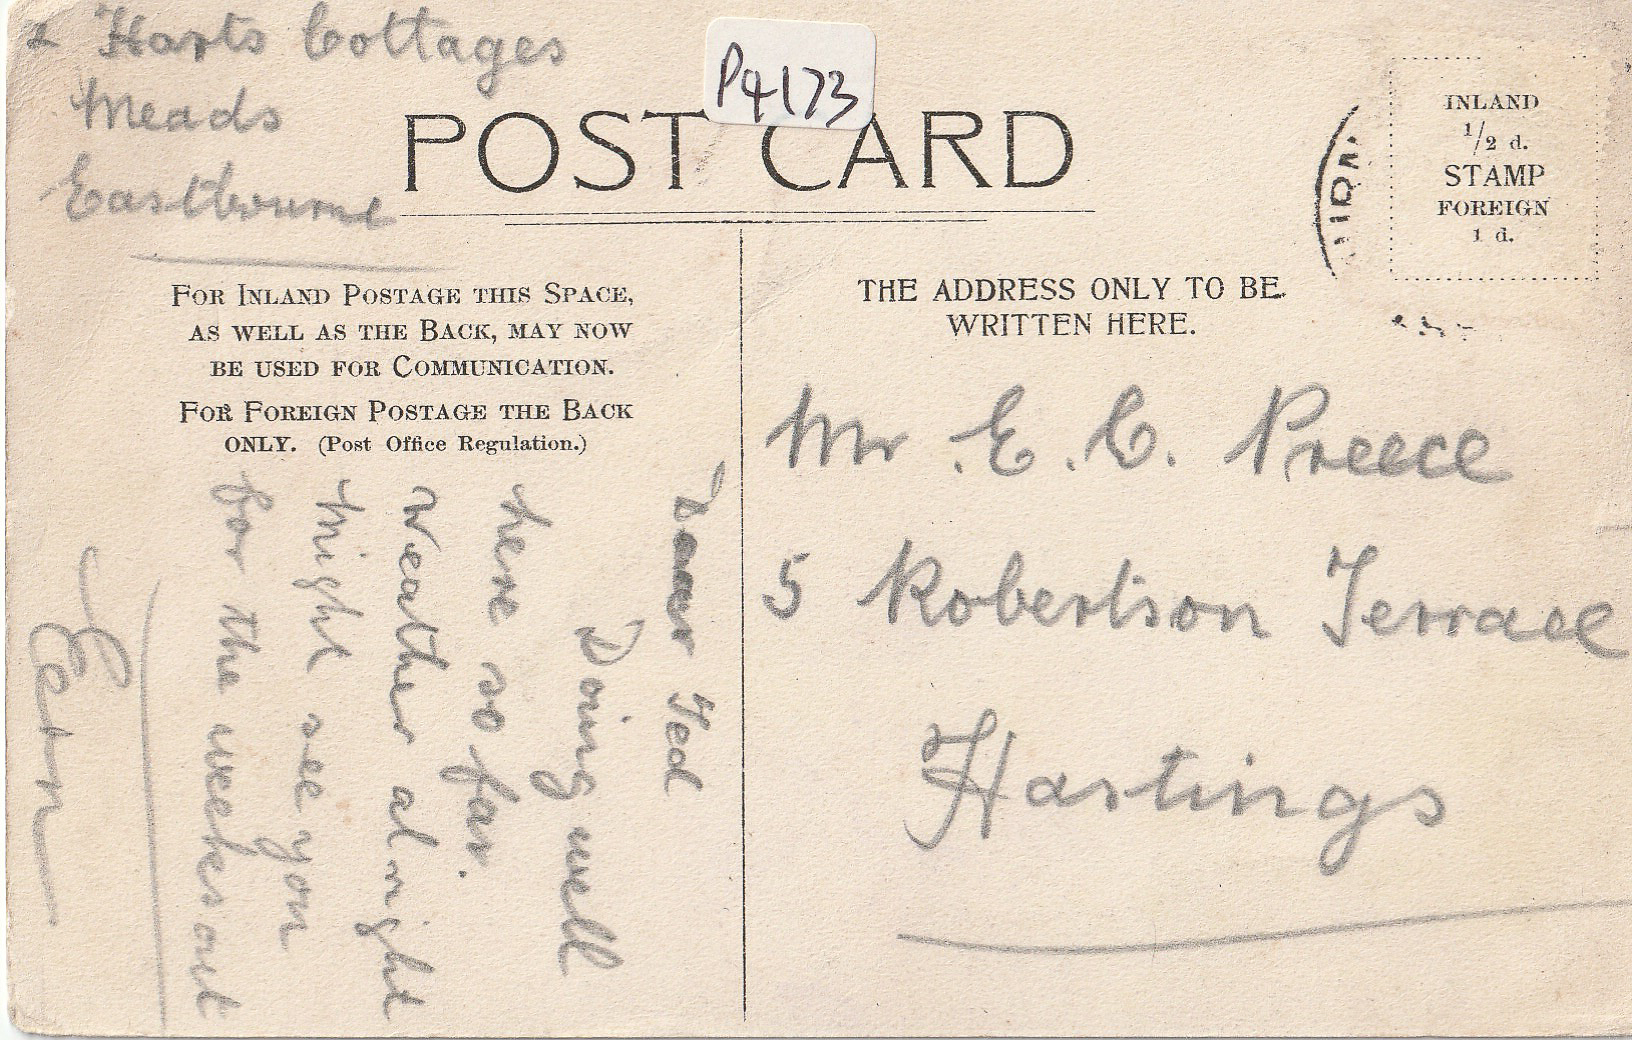 2 Harts Cottages
Meads
Eastbourne
P4173
POST CARD
INLAND
1/2 d.
STAMP
FOREIGN
1 d.
FOR INLAND POSTAGE THIS SPACE,
AS WELL AS THE BACK, MAY NOW
BE USED FOR COMMUNICATION.
FOR FOREIGN POSTAGE THE BACK
ONLY. (Post Office Regulation.)
THE ADDRESS ONLY TO BE
WRITTEN HERE.
Dear Ted
Doing well
here so far.
Weather alright
might see you
for the weeks out
Mr. E. C. Preece
5 Robertson Terrace
Hastings